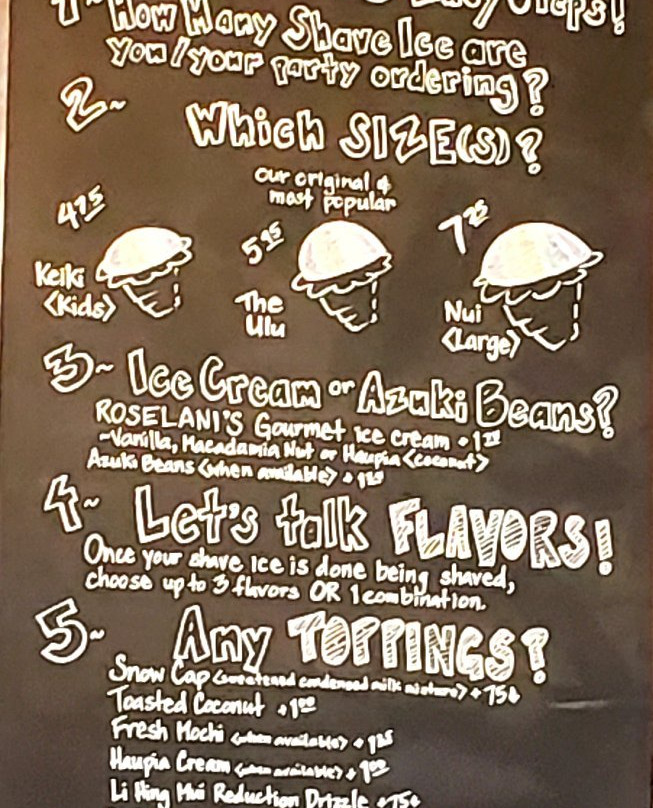 1~ How Many Shave Ice are
you/your party ordering?
2~ Which SIZE(S)?
our original &
most popular
4.75
5.95
7.25
Keiki
<Kids>
The
Ulu
Nui
<Large>
3~ Ice Cream or Azuki Beans?
ROSELANI'S Gourmet ice cream +
~Vanilla, Macadamia Nut or Haupia <coconut>
Azuki Beans <when available> +
4~ Let's talk FLAVORS!
Once your shave ice is done being shaved,
choose up to 3 flavors OR 1 combination.
5~ Any TOPPINGS?
Snow Cap <sweetened condensed milk mixture> + 75¢
Toasted Coconut +1.00
Fresh Mochi <when available> + 1.25
Haupia Cream <when available> + 1.00
Li Hing Mui Reduction Drizzle +75¢